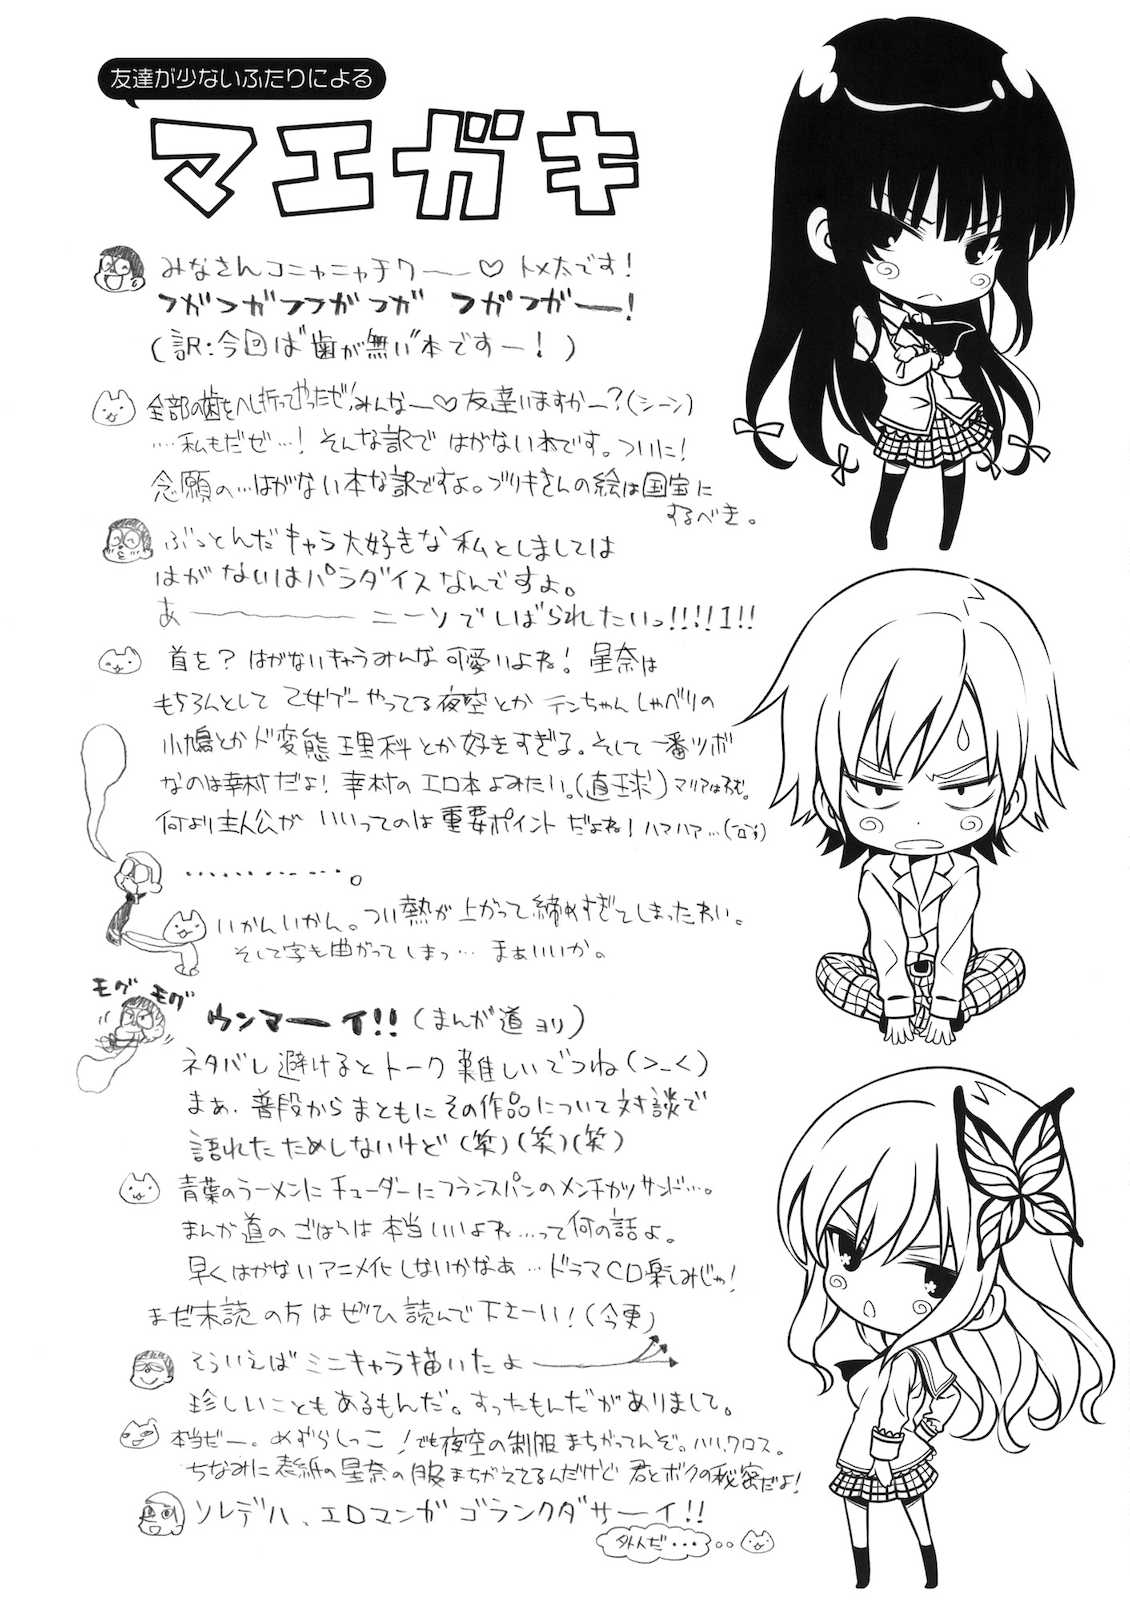 友達が少ないふたりによる
マエガキ
みなさんコニャニャチワーー♡ トメ太です!
フガフガフフガフガ フガフガー!
(訳:今回は"歯が無い"本ですー!)
全部の歯をへし折ってやったぜ!みんなー♡友達いますかー?(シーン)
…私もだぜ…! そんな訳で はがない本です。ついに!
念願の…はがない本な訳ですよ。ブリキさんの絵は国宝に
するべき。
ぶっとんだキャラ大好きな私としましては
はがないはパラダイスなんですよ。
あ――――ニーソでしばられたいっ!!!!1!!
首を? はがないキャラみんな可愛いよね! 星奈は
もちろんとして 乙女ゲーやってる夜空とか テンちゃんしゃべりの
小鳩とかド変態理科とか好きすぎる。そして一番ツボ
なのは幸村だよ! 幸村のエロ本よみたい。(直球)
何より主人公が いいってのは重要ポイントだよね! ハァハァ…
………………。
いかんいかん。つい熱が上がって締めすぎてしまったわい。
そして字も曲がってしまっ… まぁいいか。
モグ モグ
ウンマーイ!! (まんが道ヨリ)
ネタバレ避けるとトーク難しいでつね(>_<)
まぁ、普段からまともにその作品について対談で
語れたためしないけど(笑)(笑)(笑)
青葉のラーメンにチューダーにフランスパンのメンチカツサンド…。
まんが道のごはんは本当いいよね…って何の話よ。
早くはがないアニメ化しないかなぁ…ドラマCD楽しみじゃ!
まだ未読の方はぜひ読んで下さーい!(今更)
そういえばミニキャラ描いたよ
珍しいこともあるもんだ。すったもんだがありまして。
本当ビー。めずらしっこ!でも夜空の制服まちがってんぞ。ハハ、ワロス。
ちなみに表紙の星奈の服まちがえてるんだけど 君とボクの秘密だよ!
ソレデハ、エロマンガゴランクダサーイ!!
外人だ・・・